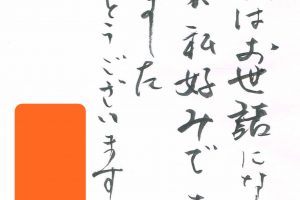 はお世話にな
私好みで
した
とうございます